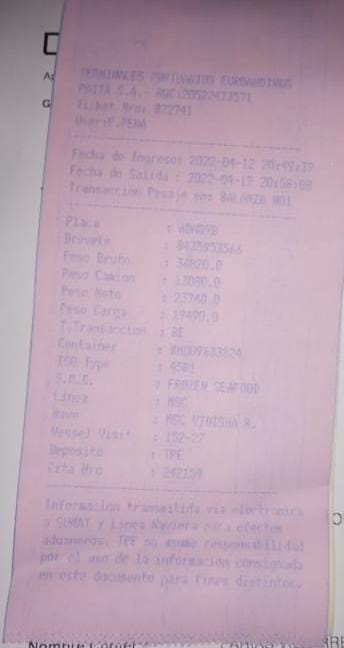 TERMINALES PORTUARIOS EUROANDINOS
PAITA S.A.- RUC:20522473571
Ticket Nro: 022741
User:F.PENA
Fecha de Ingreso: 2022-04-12 20:49:39
Fecha de Salida : 2022-04-12 20:58:08
Transaccion Pesaje en: BALANZA N01
Placa :
Brevete :
Peso Bruto : 36820.0
Peso Camion : 13080.0
Peso Neto : 23740.0
Peso Carga : 19490.0
T.Transaccion : RE
Container :
ISO Type : 45R1
: FROZEN SEAFOOD
Linea : MSC
Nave : MSC VINISHA R.
Vessel Visit : 152-22
Deposito : TPE
Cita Nro : 242154
Informacion transmitida via electronica
a SUNAT y Linea Naviera para efectos
aduaneros. TPE no asume responsabilidad
por el uso de la informacion consignada
en este documento para fines distintos.